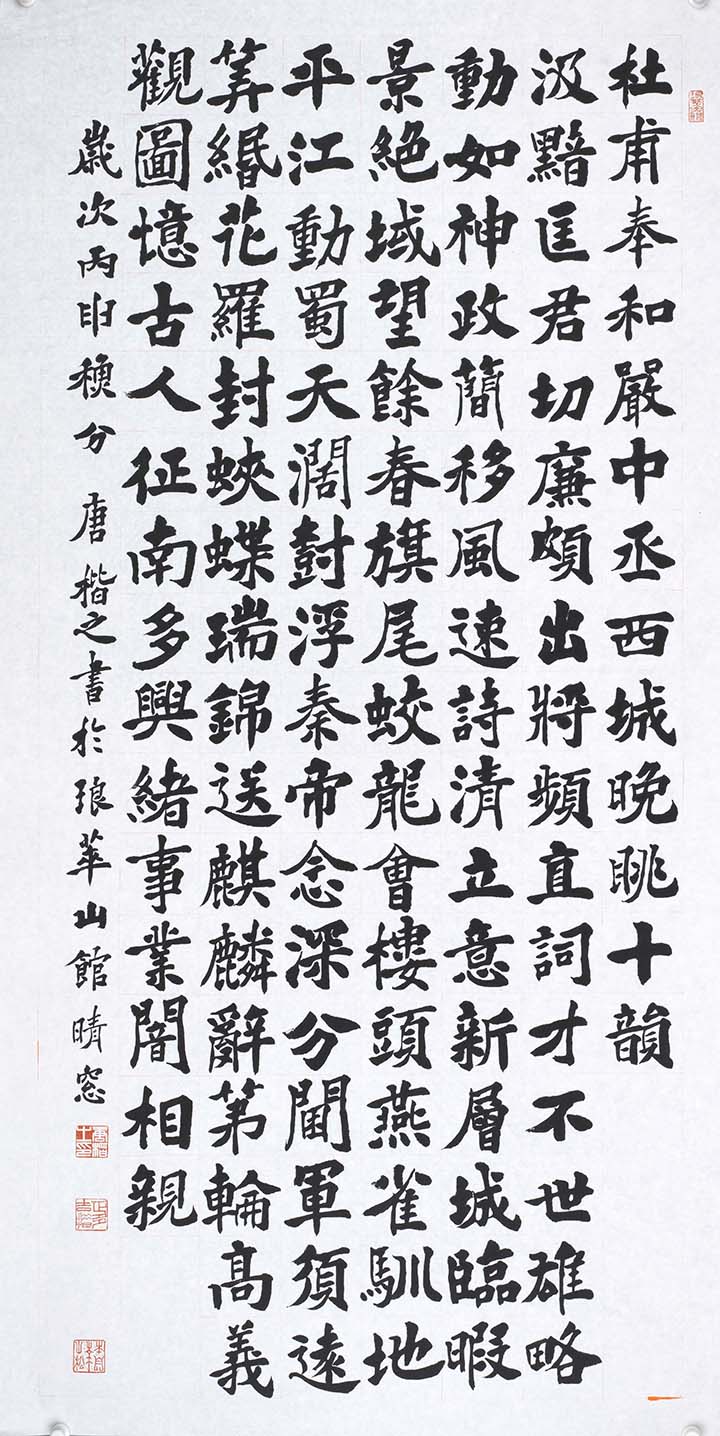 杜甫奉和嚴中丞西城晚眺十韻
汲黯匡君切廉頗出將頻直詞才不世雄略
動如神政簡移風速詩清立意新層城臨暇
景絕域望餘春旗尾蛟龍會樓頭燕雀馴地
平江動蜀天濶尌浮秦帝念深分閫軍須遠
筭緡花羅封蛺蝶瑞錦送麒麟辭第輪高義
觀圖憶古人征南多興緒事業闇相親
歲次丙申穐分 唐楷之書於琅華山館晴窓